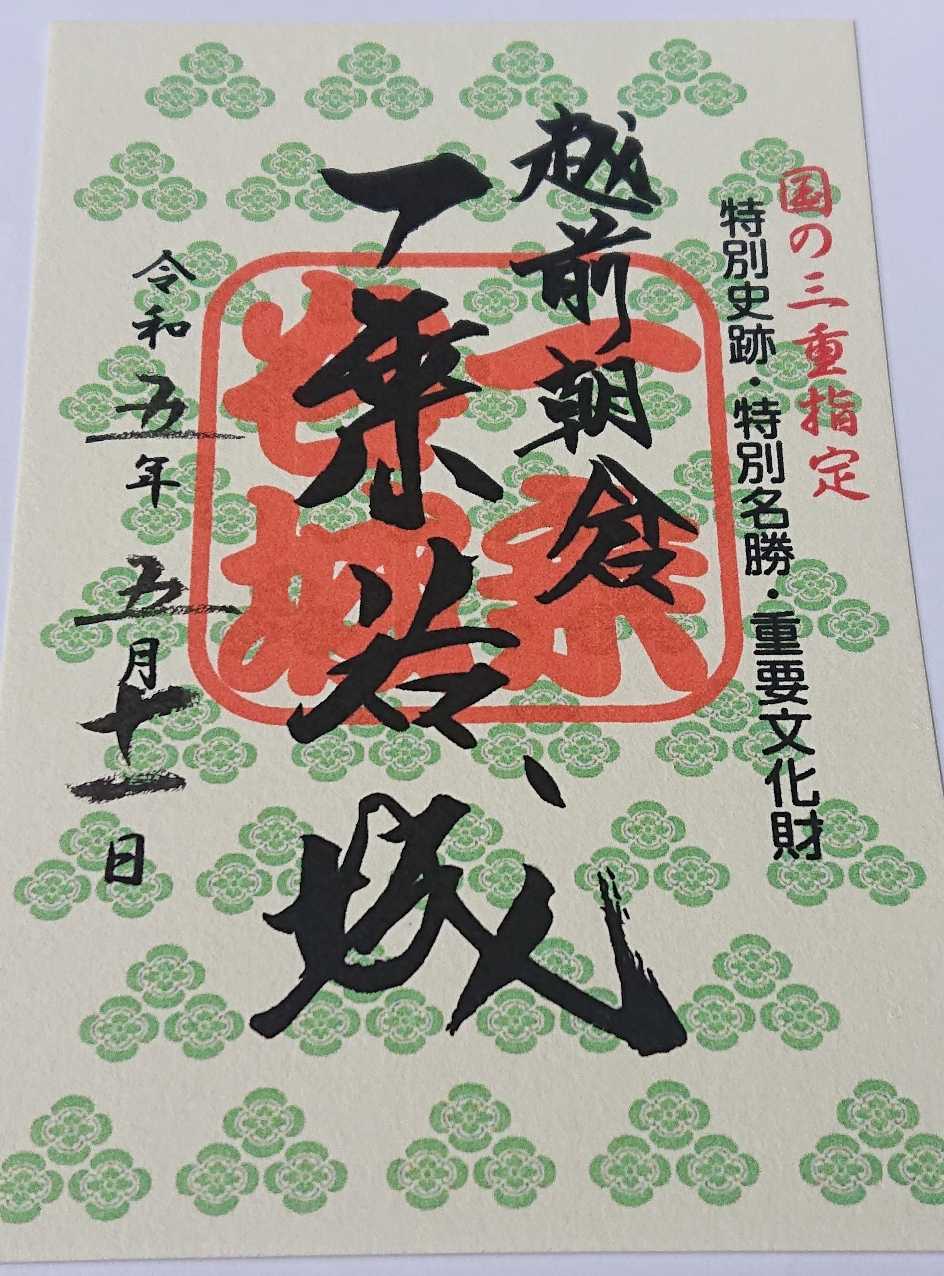 国の三重指定
特別史跡・特別名勝・重要文化財
越前朝倉
一乗谷城
令和五年 五月十一日